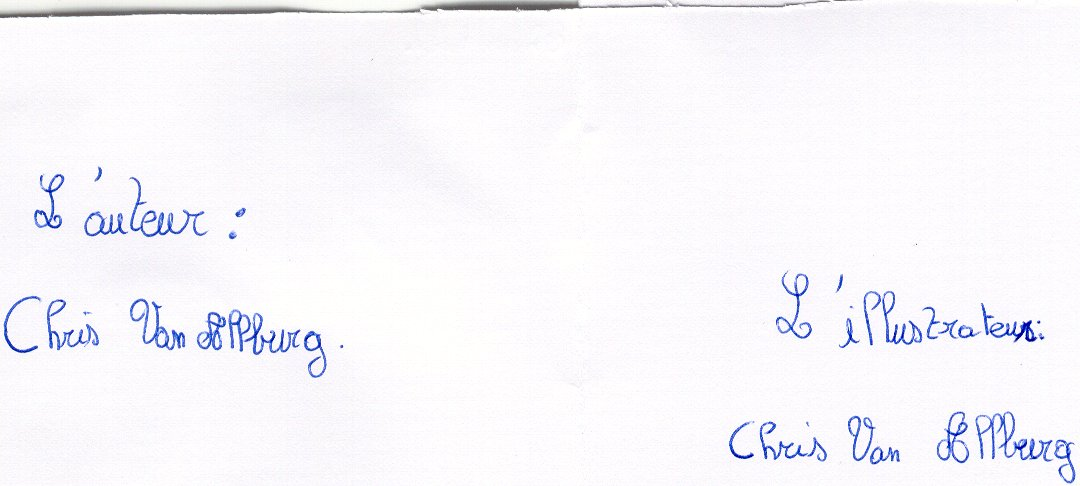 L'auteur :
Chris Van Allburg.
L'illustrateur:
Chris Van Allburg